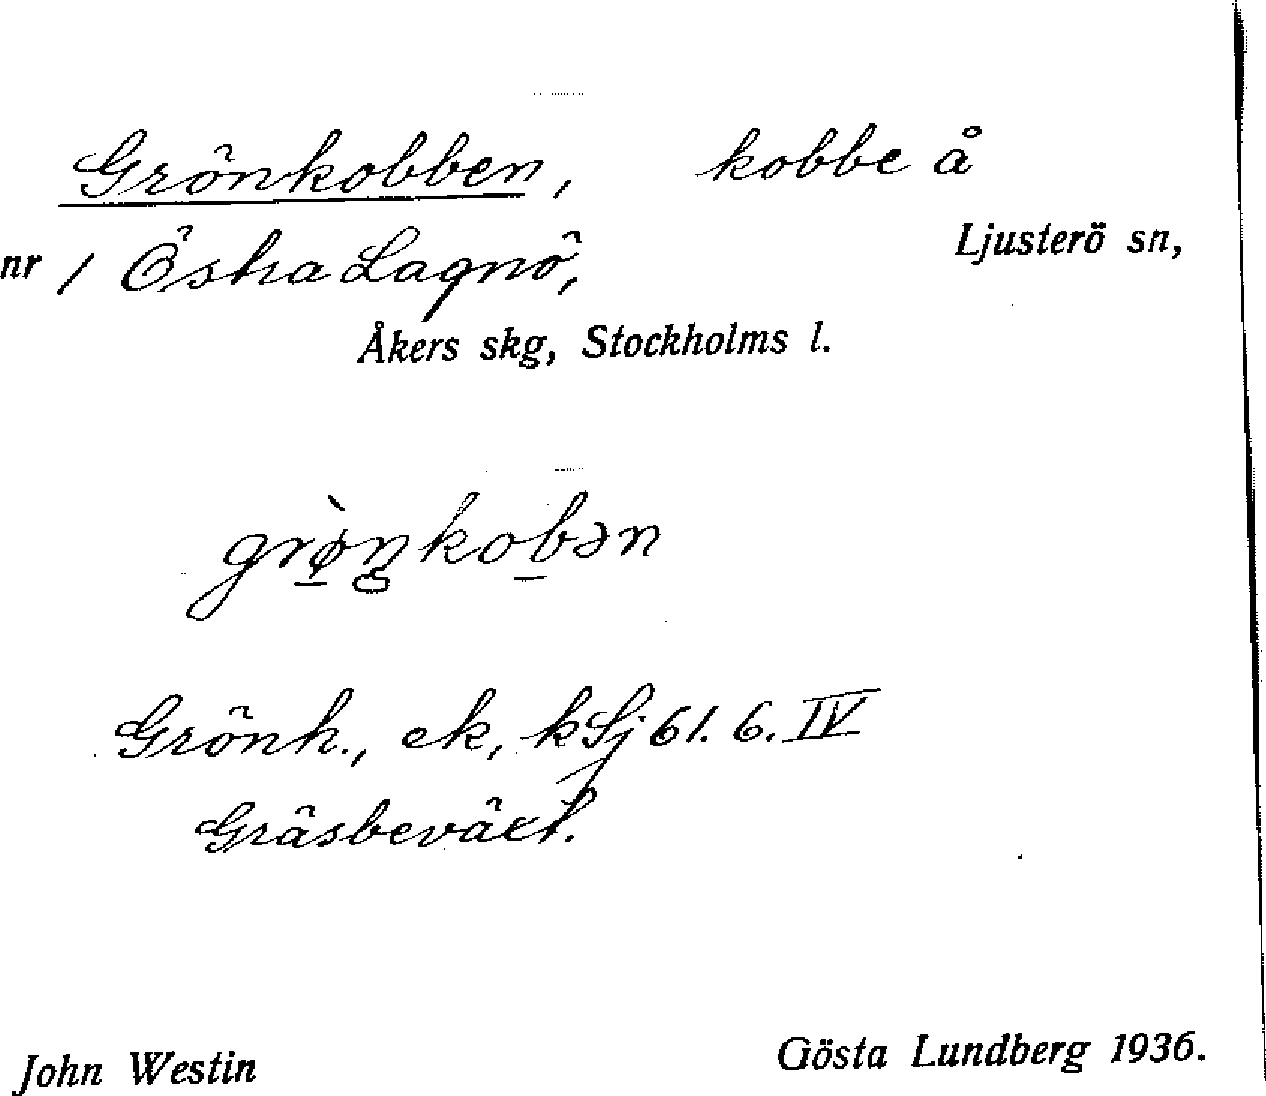 Grönkobben, kobbe å
nr 1 Östra Lagnö, Ljusterö sn,
Åkers skg, Stockholms l.
grø̀ŋkobən
Grönk., ek, kSj 61. 6. IV
Gräsbeväxt.
John Westin Gösta Lundberg 1936.